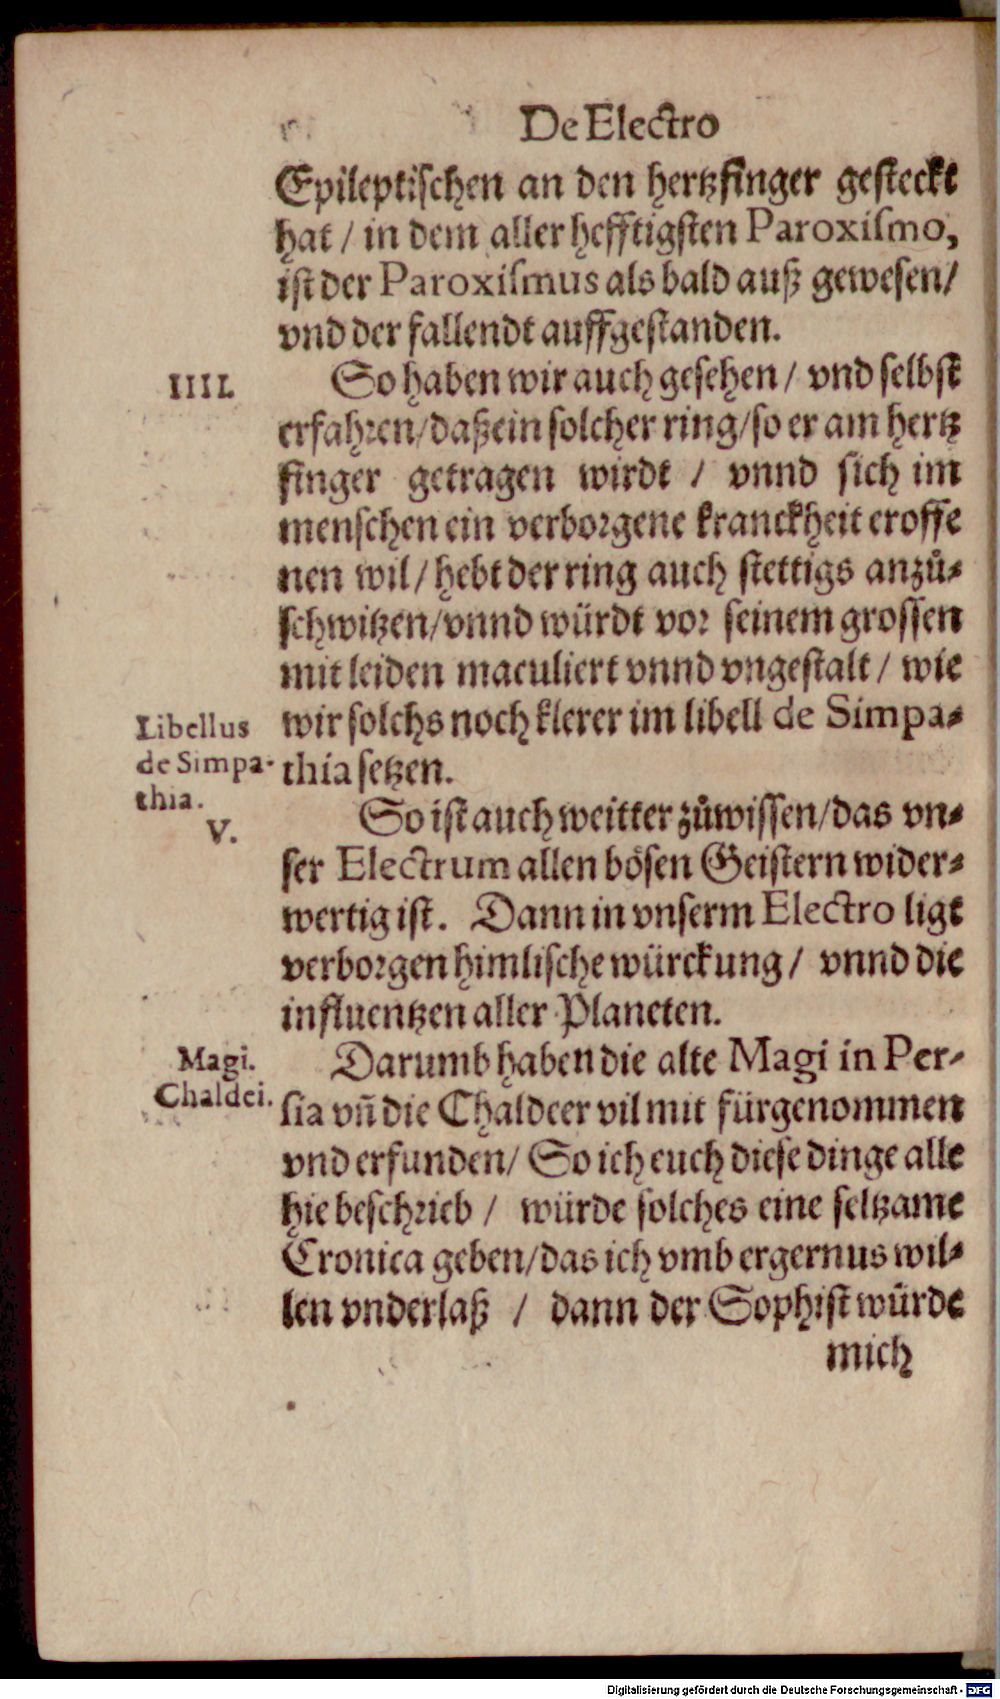 De Electro
Epileptischen an den hertzfinger gesteckt
hat / in dem aller hefftigsten Paroxiſmo,
ist der Paroxiſmus als bald auß gewesen/
vnd der fallendt auffgestanden.
IIII.
So haben wir auch gesehen / vnd selbst
erfahren/daß ein solcher ring/so er am hertz
finger getragen wirdt / vnnd sich im
menschen ein verborgene kranckheit eroffe
nen wil / hebt der ring auch stettigs anzů-
schwitzen/vnnd würdt vor seinem grossen
mit leiden maculiert vnnd vngestalt / wie
wir solchs noch klerer im libell de Simpa-
thia setzen.
Libellus
de Simpa-
thia.
V.
So ist auch weitter zůwissen/das vn-
ser Electrum allen bösen Geistern wider-
wertig ist. Dann in vnserm Electro ligt
verborgen himlische würckung / vnnd die
influentzen aller Planeten.
Magi.
Chaldei.
Darumb haben die alte Magi in Per-
sia vñ die Chaldeer vil mit fürgenommen
vnd erfunden/ So ich euch diese dinge alle
hie beschrieb / würde solches eine seltzame
Cronica geben/das ich vmb ergernus wil-
len vnderlaß / dann der Sophist würde
mich
Digitalisierung gefördert durch die Deutsche Forschungsgemeinschaft - DFG